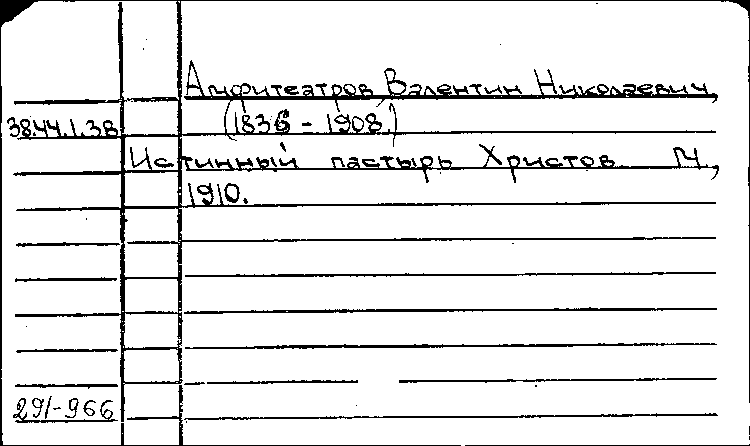 Амфитеатров Валентин Николаевич,
38.44.1.3В (1836 - 1908.)
Истинный пастырь Христов. М.,
1910.
291-966